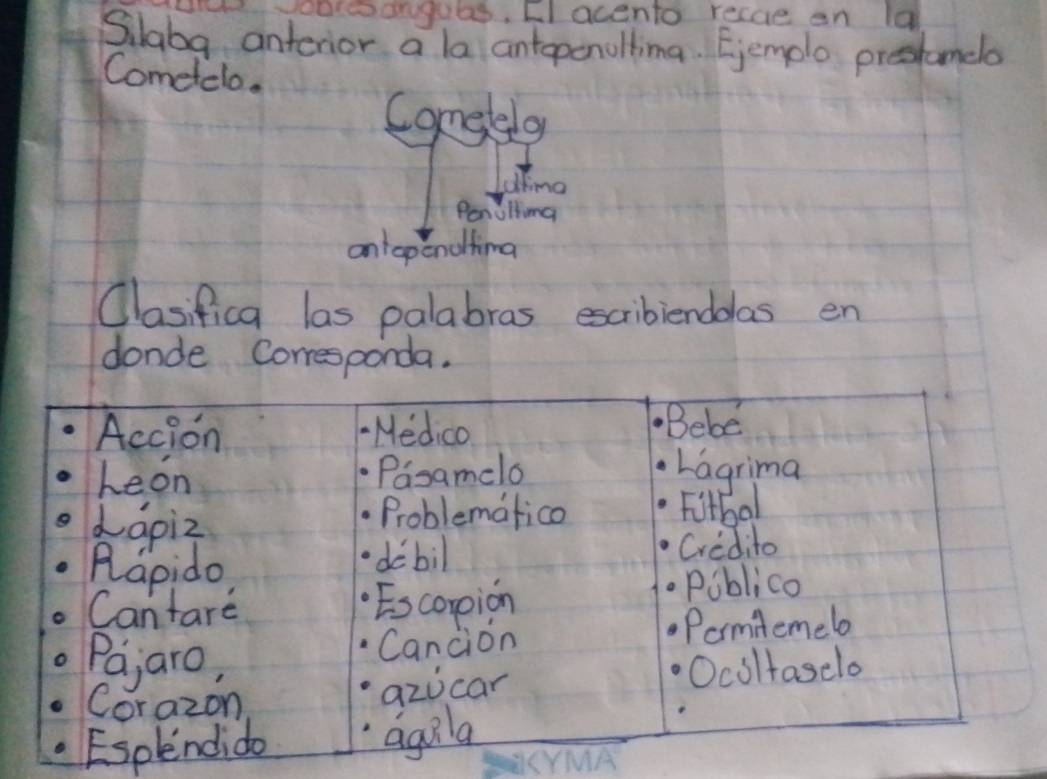 Sobresangulas. El acento recae en la
Silaba anterior a la antepenultima. Ejemplo prestamelo
Cometelo.
Cometelo
ultima
Penultima
antepenultima
Clasifica las palabras escribiendolas en
donde corresponda.
• Acción
• León
• Lápiz
• Rápido
• Cantaré
• Pájaro
• Corazón
• Espléndido
• Médico
• Pásamelo
• Problemático
• débil
• Escorpión
• Canción
• azúcar
• águila
• Bebé
• Lágrima
• Fútbol
• Crédito
• Público
• Permítemelo
• Ocúltaselo
•
KYMA